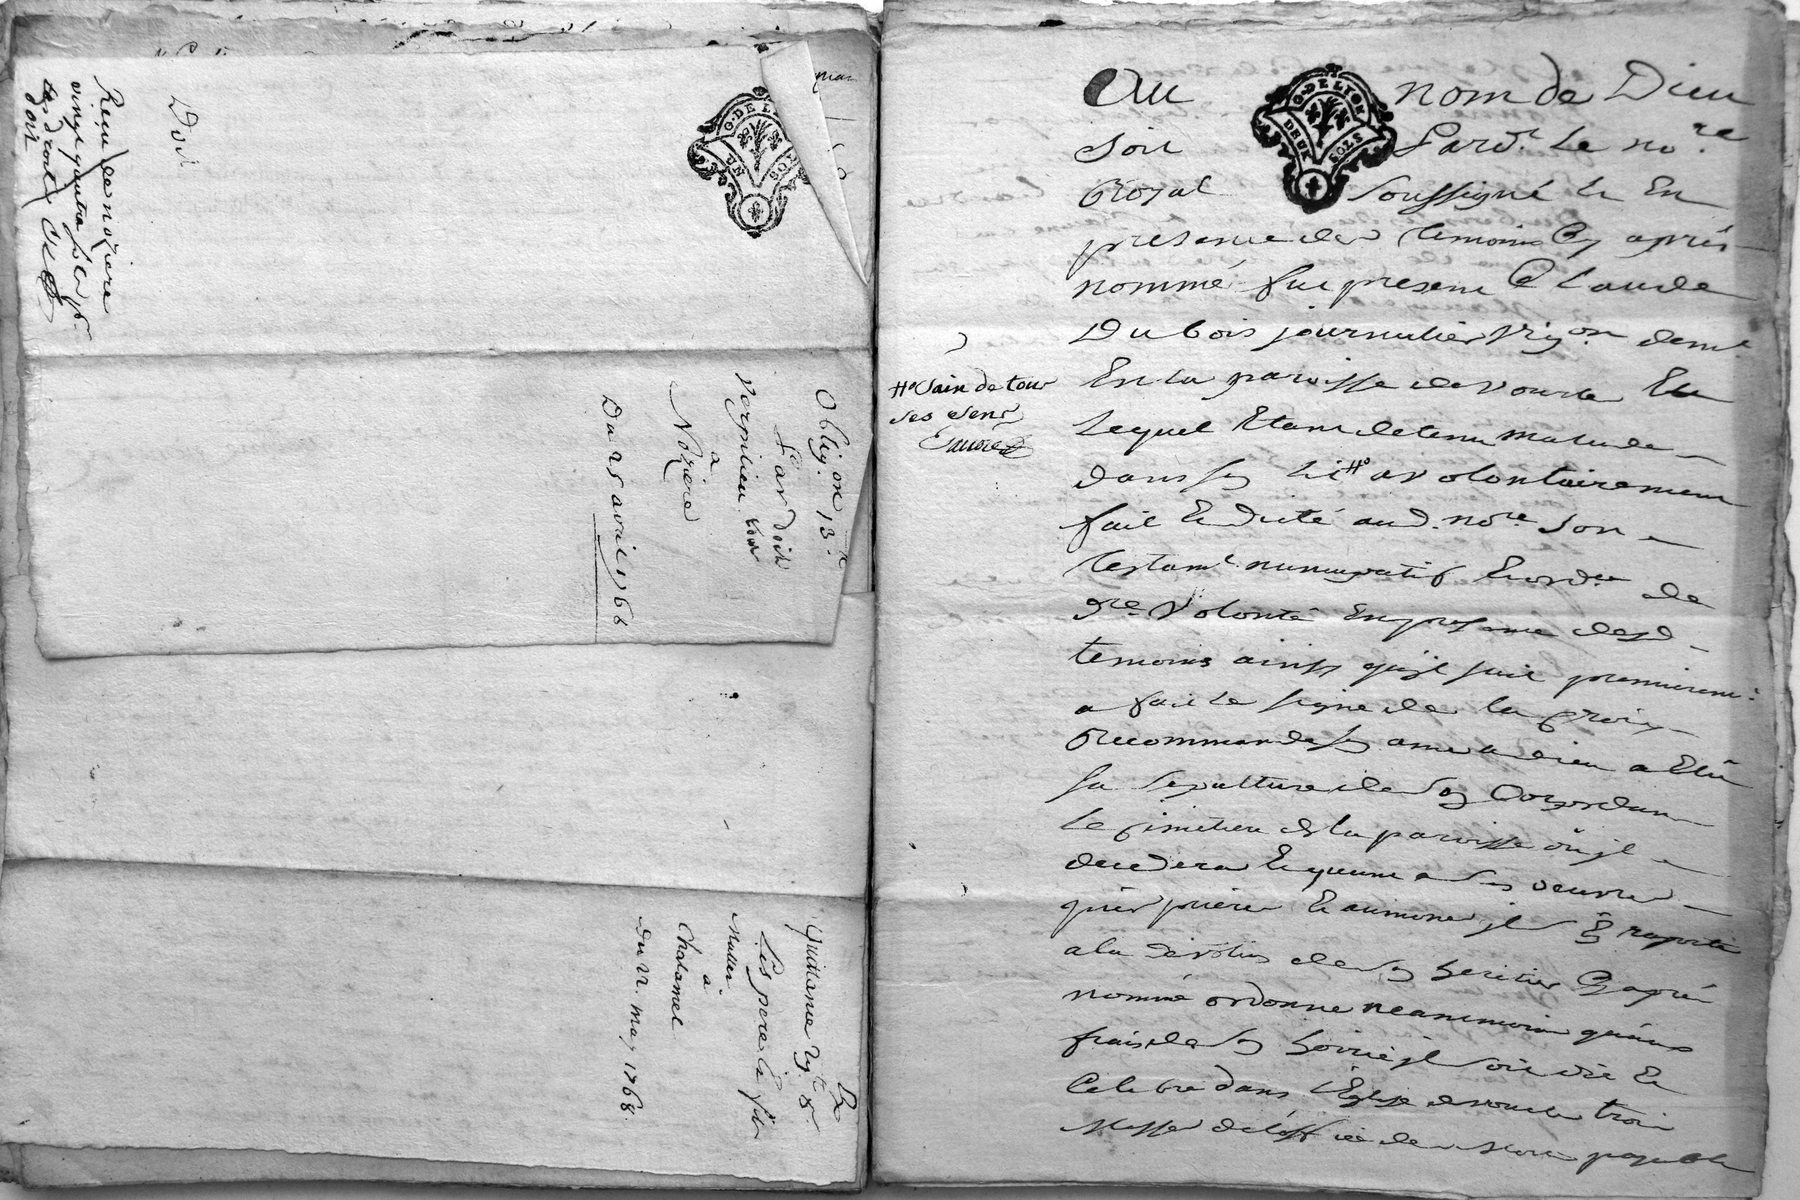 Reçu de noziere
vingt quattre sols
les droits
Doit
Doit
G. DE LION
UN
SOL
Oblig.on 13.
Verpilieu
a
Noziere
Du 25 avril 1766
Quittance
Les pere & fils
Mallet
a
Chatamel
Du 22. may 1768.
Au nom de Dieu
G. DE LION
DEUX SOLS
soit Pard.t le no.re
Royal soussigné & En
presence des temoins Cy après
nommé fut present Claude
Dubois journalier vig.on dem.t
En la paroisse de vourle
Lequel Etant detenu malade
dans son lit # a volontairement
# Sain de tous
ses sens
fait & dicté aud. no.re son
testam.t nuncupatif & ord.ce de
d.re volonté En presence desd
temoins ainsy qu'jl suit premierem.t
a fait le signe de la Croix
Recommande son ame a dieu a Elû
sa sepulture de son Corps dans
le Cimetiere de la paroisse où jl
decedera & quant a ses oeuvres
prieres & aumones jl s'en raporte
a la devotion de son heritier Cy après
nommé ordonne neanmoins qu'aux
frais de son hoirie jl soit dit &
Celebré dans l'Eglise de vourle trois
Messes de l'office des Morts payable